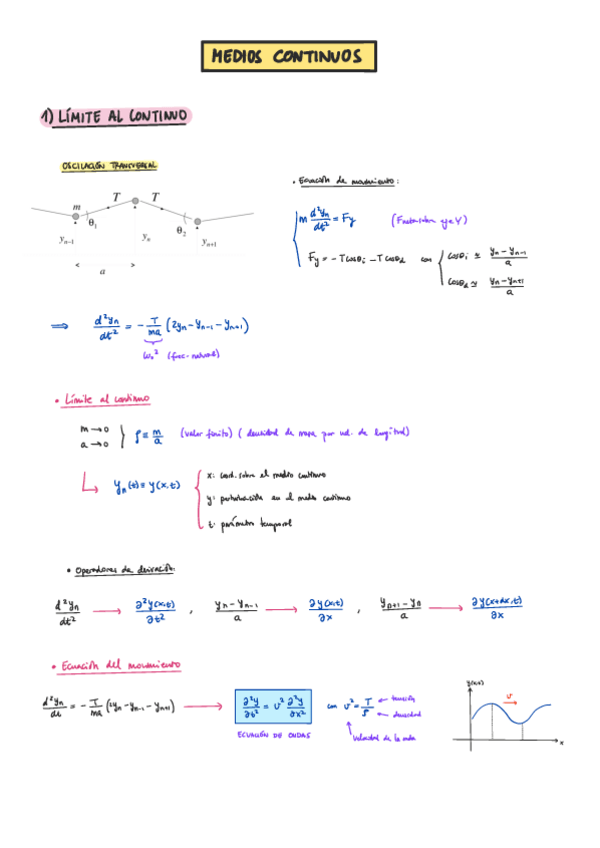 MEDIOS CONTINUOS
1) LÍMITE AL CONTINUO
OSCILACIÓN TRANSVERSAL
m T T
θ₁ θ₂
yₙ₋₁ yₙ yₙ₊₁
a
• Ecuación de movimiento:
m d²yₙ/dt² = Fy (Fuerza sobre eje Y)
Fy = - T cosθ₁ - T cosθ₂ con cosθ₁ ≃ yₙ - yₙ₋₁/a
cosθ₂ ≃ yₙ - yₙ₊₁/a
⟹ d²yₙ/dt² = - T/ma (2yₙ - yₙ₋₁ - yₙ₊₁)
ω₀² (frec. natural)
• Límite al continuo
m → 0
a → 0 } ρ ≡ m/a (valor finito) (densidad de masa por ud. de longitud)
yₙ(t) ≡ y(x,t)
x: coord. sobre el medio continuo
y: perturbación en el medio continuo
t: parámetro temporal
• Operadores de derivación:
d²yₙ/dt² → ∂²y(x,t)/∂t² , yₙ - yₙ₋₁/a → ∂y(x,t)/∂x , yₙ₊₁ - yₙ/a → ∂y(x+dx,t)/∂x
• Ecuación del movimiento
d²yₙ/dt = - T/ma (2yₙ - yₙ₋₁ - yₙ₊₁) → ∂²y/∂t² = v² ∂²y/∂x² con v² = T/ρ ← tensión
← densidad
ECUACIÓN DE ONDAS
Velocidad de la onda
y(x,t)
v
x